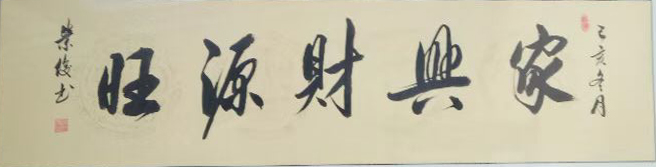 乙亥冬月
家興財源旺
崇俊书